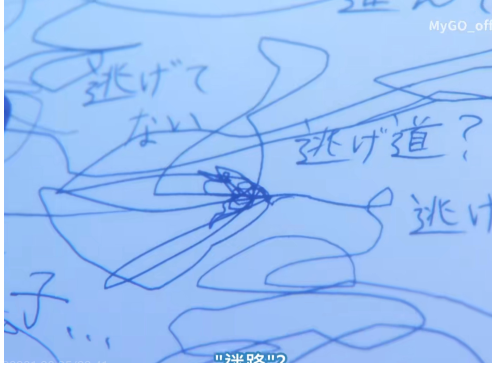 MyGO_off
逃げて
ない
逃げ道?
逃げ
子...
"迷路"?